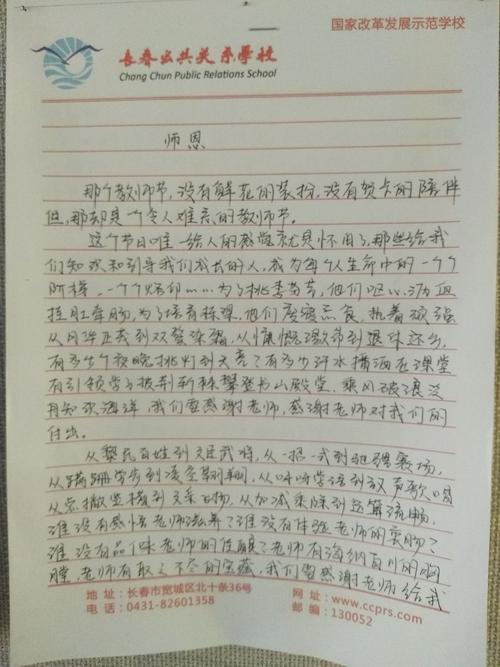 国家改革发展示范学校
长春公共关系学校
Chang Chun Public Relations School
师恩
那个教师节,没有鲜花的装扮,没有贺卡的陪伴
但,那却是一个令人难忘的教师节。
这个节日唯一给人的感觉就是怀旧了,那些给我
们知识和引导我们成长的人,成为每个人生命中的一个个
阶梯,一个个烙印……为了桃李芬芳,他们呕心沥血
牵肠,为了培育栋梁,他们废寝忘食,执着顽强
从风华正茂到双鬓染霜,从慷慨激昂到退休还乡,
有多少个夜晚挑灯到天亮?有多少汗水播洒在课堂
有引领学子披荆斩棘攀登书山殿堂,乘风破浪
知识海洋,我们要感谢老师,感谢老师对我们的
付出。
从黎民百姓到文臣武将,从一招一式到驰骋赛场,
从蹒跚学步到凌空翱翔,从咿呀学语到放声歌唱
从点撇竖横到文采飞扬,从加减乘除到运算流畅,
谁没有感悟老师滋养?谁没有体验老师的
谁没有品味老师的 ?老师有海纳百川的胸
膛,老师有取之不尽的宝藏,我们要感谢老师给我
地 址:长春市宽城区北十条36号
电 话:0431-82601358
网 址:www.ccprs.com
邮 编:130052